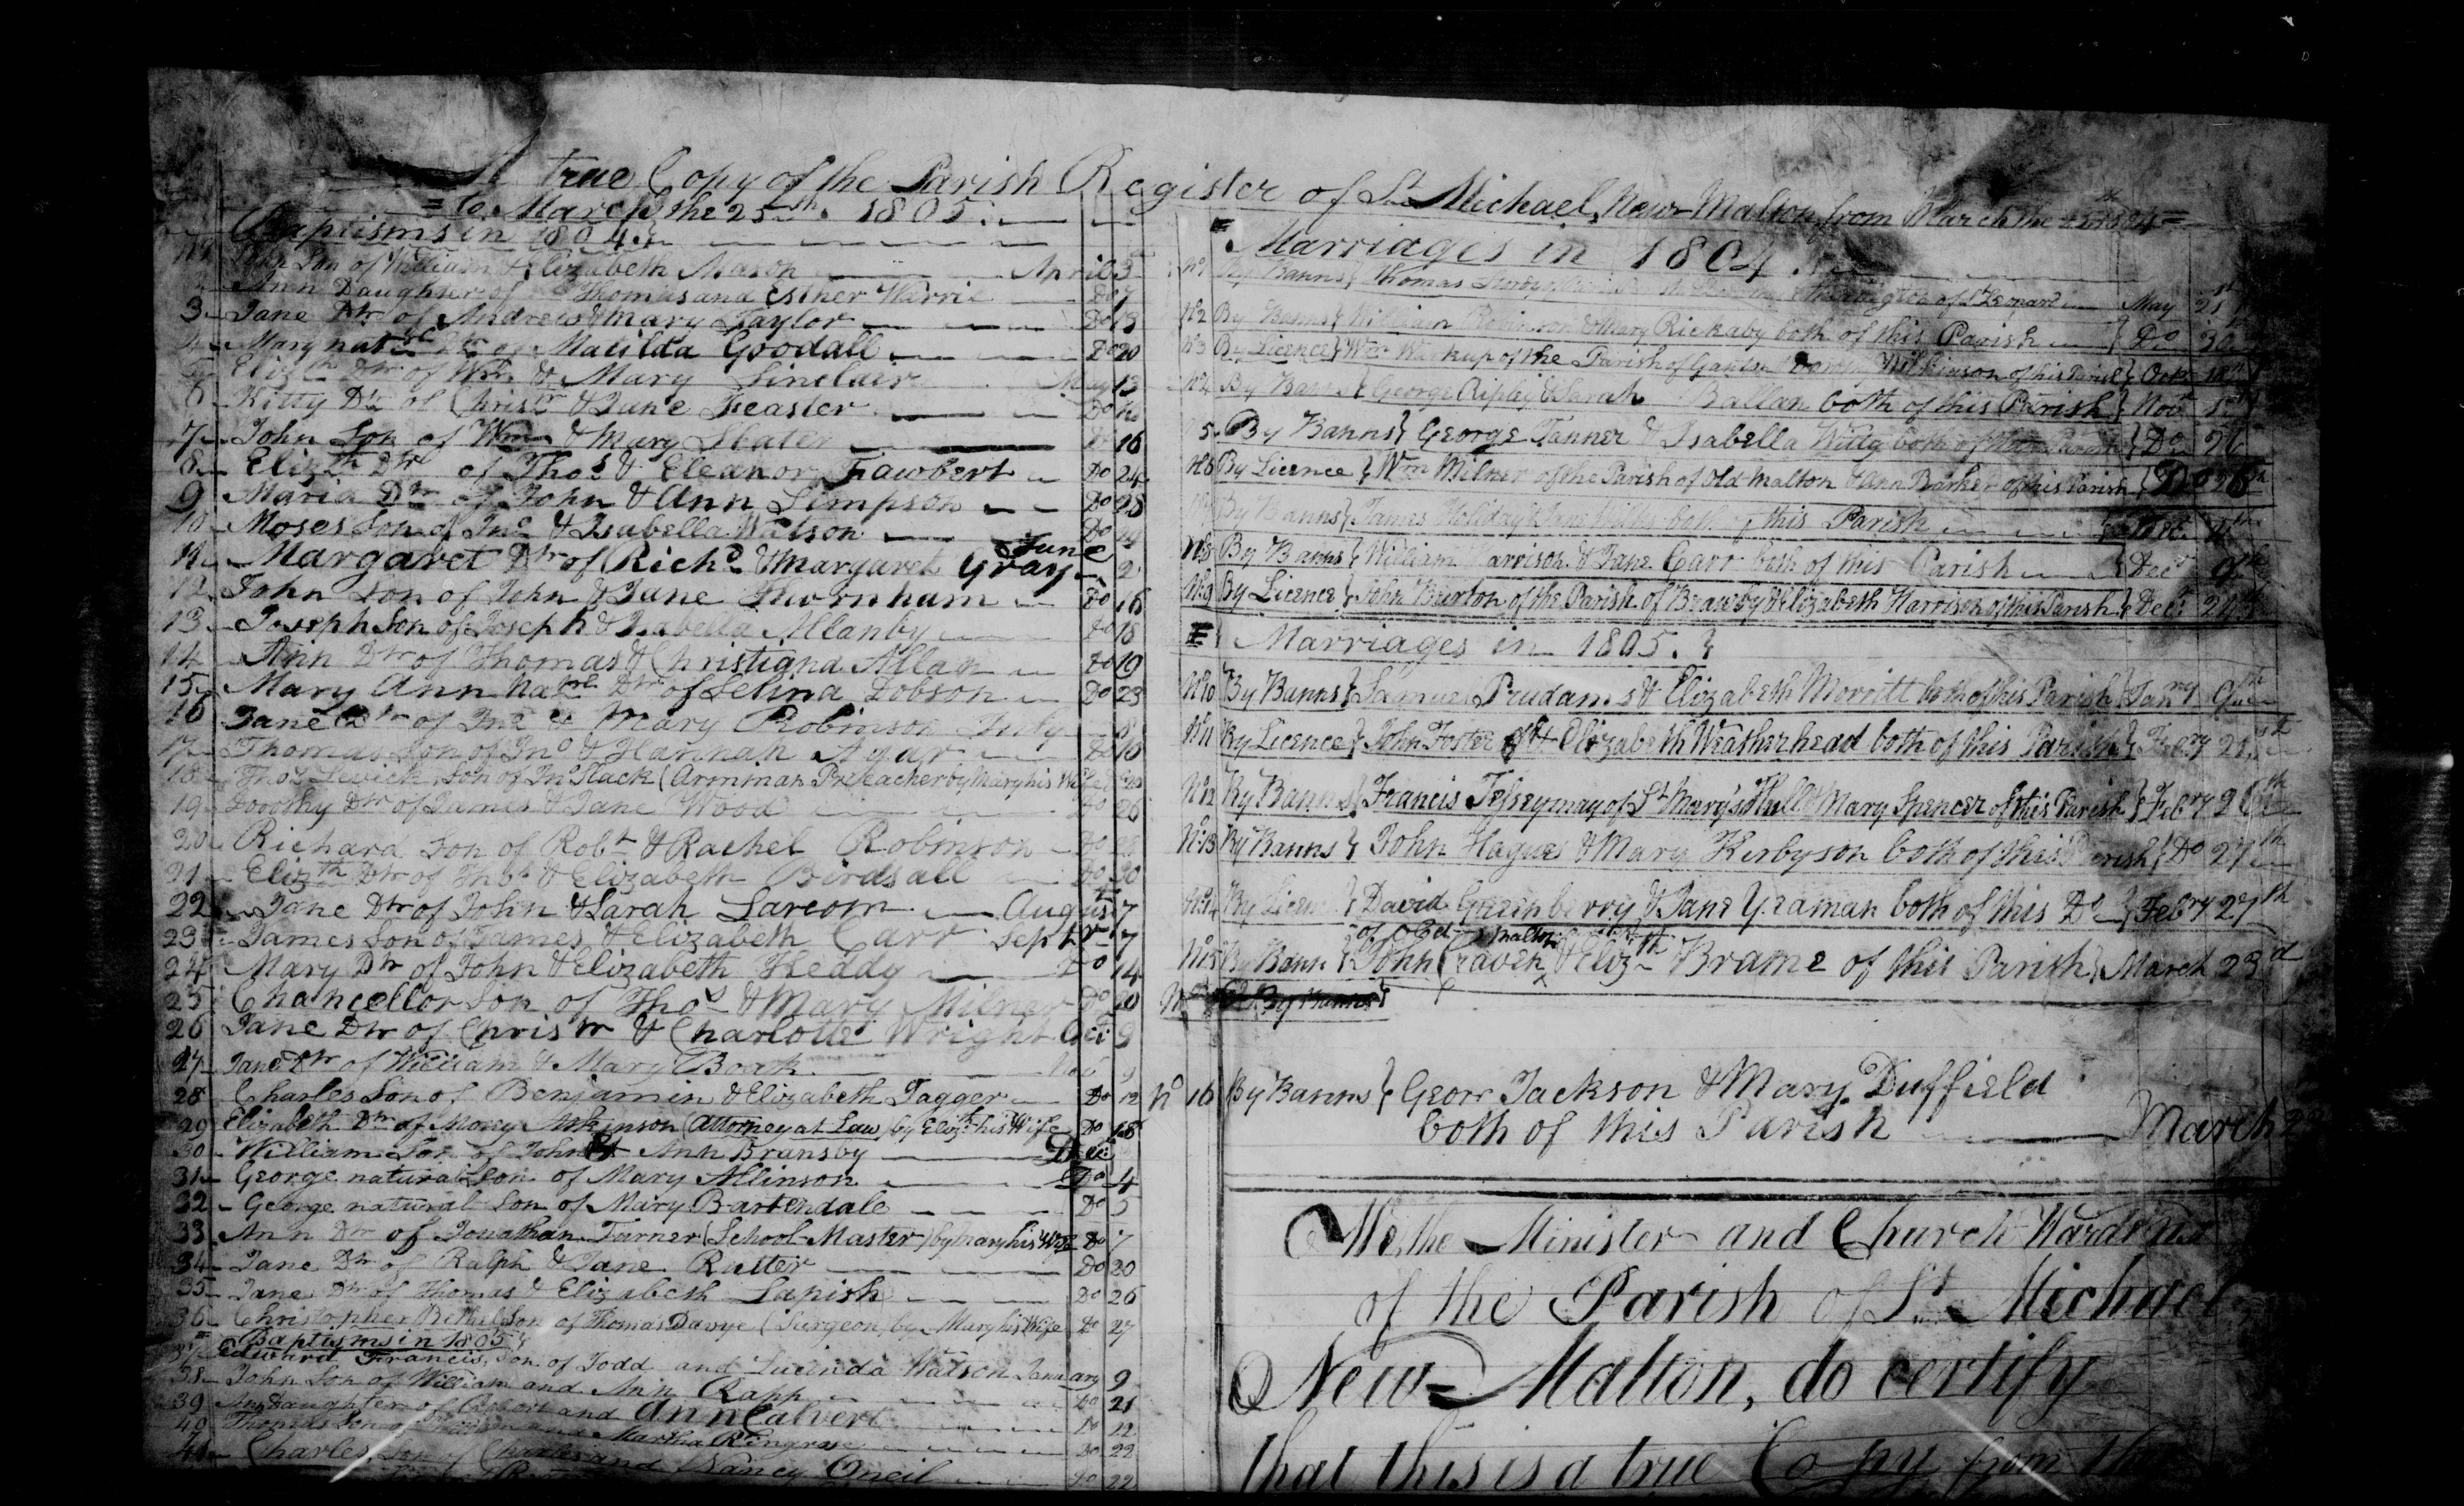 A true Copy of the Parish Register of St Michael, New-Malton, from March the
= to March the 25th. 1805.
Baptisms in 1804.
No 1 John Son of William & Elizabeth Mason April 5
2 Ann Daughter of Thomas and Esther Do 7
3 Jane Dtr of Andrew & Mary Taylor Do 13
4 Mary Dtr of Matilda Goodall Do 20
5 Elizth Dtr of Wm & Mary Sinclair May 13
6 Kitty Dtr of Christr & Jane Feaster Do
7 John Son of Wm & Mary Slater Do 16
8 Elizth Dtr of Thos & Eleanor Fawbert Do 24
9 Maria Dtr of John & Ann Simpson Do 28
10 Moses Son of Jno & Isabella Watson Do
11 Margaret Dtr of Richd & Margaret Gray June 2
12 John Son of John & Jane Thornham Do 16
13 Joseph Son of Joseph & Isabella Allanby Do 18
14 Ann Dtr of Thomas & Christiana Allan Do 19
15 Mary Ann Natrl Dtr of Selina Dobson Do 23
16 Jane Dtr of Jno & Mary Robinson July 8
17 Thomas Son of Jno & Hannah Agar Do 10
18 Thos Son of Jno Slack (Arminian Preacher by Mary his Wife Do
19 Dorothy Dtr of James & Jane Wood Do 26
20 Richard Son of Robt & Rachel Robinson Do
21 Elizth Dtr of & Elizabeth Birdsall Do 30
22 Jane Dtr of John & Sarah Sarcom August 7
23 James Son of James & Elizabeth Carr Septr 7
24 Mary Dtr of John & Elizabeth Heddy Do 14
25 Chancellor Son of Thos & Mary Milner Do 20
26 Jane Dtr of Christr & Charlotte Wright Oct: 9
27 Jane Dtr of William & Mary Boak 9
28 Charles Son of Benjamin & Elizabeth Tagger Do 12
29 Elizabeth Dtr of Atkinson (Attorney at Law) by Elizth his Wife Do 18
30 William Son of John & Ann Bransby Dec:
31 George natural Son of Mary Allinson Do 4
32 George natural Son of Mary Bartendale Do 5
33 Ann Dtr of Jonathan Turner (School-Master) by Mary his Wife Do 7
34 Jane Dtr of Ralph & Jane Rutter Do 20
35 Jane Dtr of Thomas & Elizabeth Lapish Do 26
36 Christopher Bethel Son of Thomas Davye (Surgeon) by Mary his Wife Do 27
Baptisms in 1805
37 Edward Francis, Son of Todd and Lucinda Watson January 9
38 John Son of William and Ann Rapp Do 21
39 Ann Daughter of and Ann Calvert Do 12
40 Thomas Son of and Martha Ringrose Do 22
41 Charles Son of Charles and Nancy Oneil Do 22
Marriages in 1804.
No 1 By Banns} Thomas of St Leonard May 21st
No 2 By Banns} William Robinson & Mary Rickaby both of this Parish } Do 30
No 3 By Licence} Wm Warkup of the Parish of Ganton & Wilkinson of this Parish} Octr 18th
No 4 By Banns} George Ripley & Sarah Ballan both of this Parish} Novr
5 By Banns} George Tanner & Isabella both of Parish } Do
No 6 By Licence } Wm Milner of the Parish of Old-Malton & Ann Barker of this Parish } Do 26th
By Banns} James Holiday & Jane both of this Parish
No 8 By Banns} William Harrison & Jane Carr both of this Parish } Decr 9th
No 9 By Licence} John Burton of the Parish of Brawby & Elizabeth Harrison of this Parish } Decr 24th
Marriages in 1805.
No 10 By Banns} Samuel Prudams & Elizabeth Morritt both of this Parish } Janry 9th
No 11 By Licence} John Foster & Elizabeth Weatherhead both of this Parish } Febry 21st
No 12 By Banns} Francis of St Mary's Hull & Mary Spencer of this Parish } Febry 26th
No 13 By Banns} John Hagues & Mary Kirbyson both of this Parish} Do 27th
No 14 By Licence } David Greenberry & Jane Yeaman both of this Do } Febry 27th
of Old Malton
No 15 By Bann } John Craven & Elizth Brame of this Parish} March 23d
By Banns}
No 16 By Banns} Geor Jackson & Mary Duffield
both of this Parish March
We, the Minister and Church-Wardens
of the Parish of St. Michael
New-Malton, do certify
that this is a true Copy from the